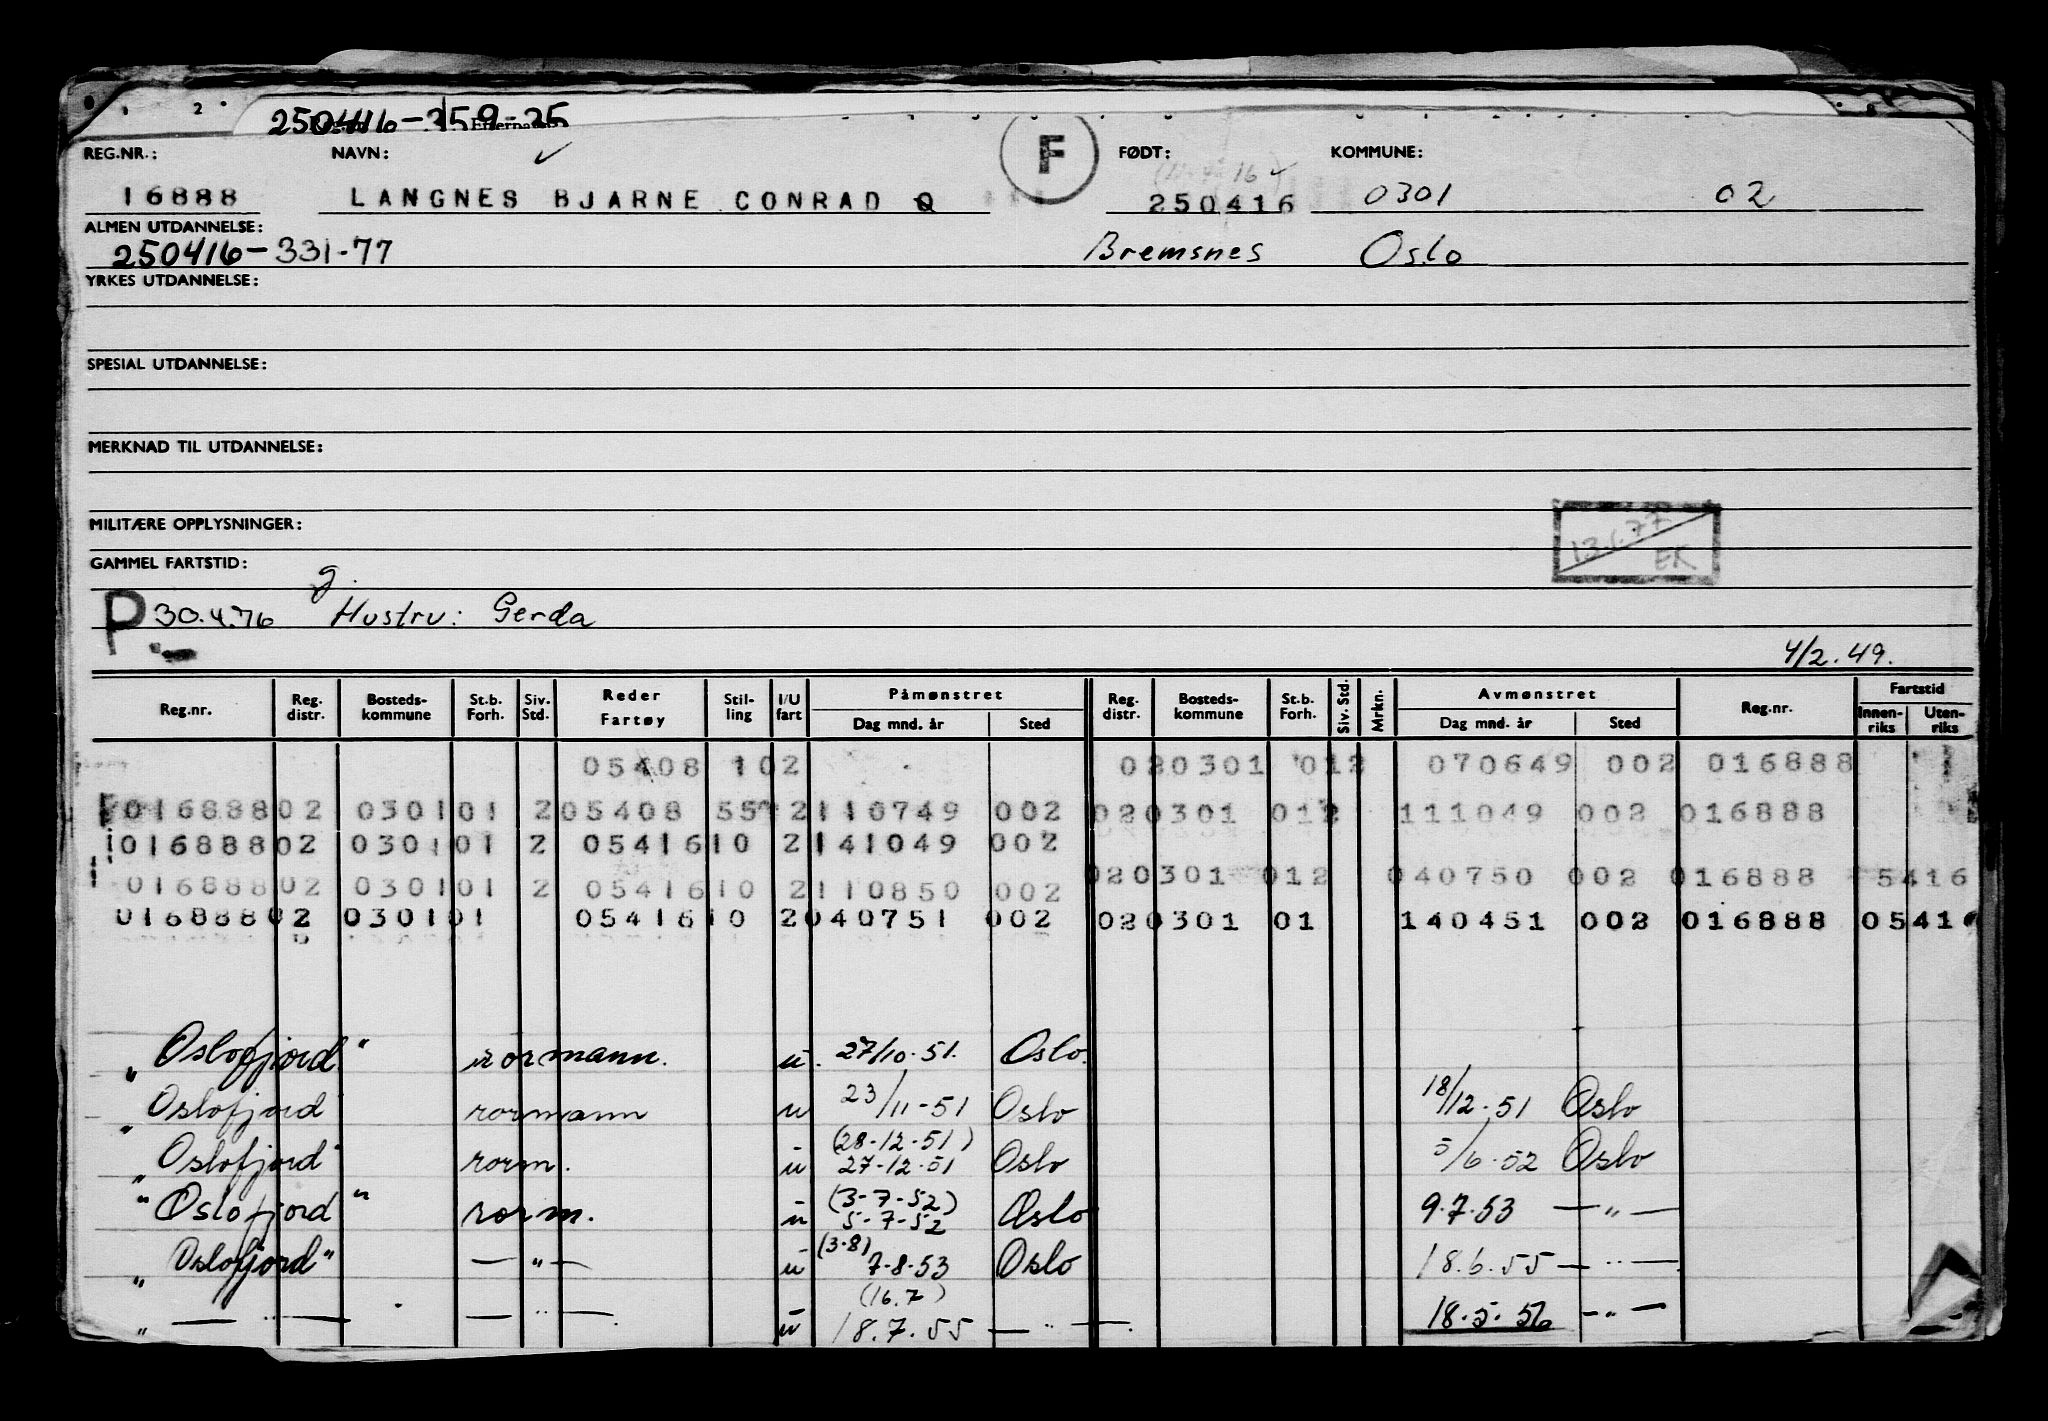 250416-359-35
REG.NR.: NAVN: F FØDT: KOMMUNE:
16888 LANGNES BJARNE CONRAD Q 250416 0301 02
ALMEN UTDANNELSE:
250416-331-77 Bremsnes Oslo
YRKES UTDANNELSE:
SPESIAL UTDANNELSE:
MERKNAD TIL UTDANNELSE:
MILITÆRE OPPLYSNINGER:
13.1.77 EK
GAMMEL FARTSTID:
g.
P 30.4.76 Hustru: Gerda
4/2.49.
Reg.nr. Reg. distr. Bosteds-kommune St.b. Forh. Siv. Std. Reder Fartøy Stil-ling I/U fart Påmønstret Dag mnd. år Sted Reg. distr. Bosteds-kommune St.b. Forh. Siv. Std. Mrkn. Avmønstret Dag mnd. år Sted Reg.nr. Fartstid Innen-riks Uten-riks
05408 102 020301 012 070649 002 016888
01688802 030101 205408 55 2110749 002 020301 012 111049 002 016888
01688802 030101 2 0541610 2141049 002
020301 012 040750 002 016888 5416
01688802 030101 2 0541610 2110850 002
01688802 030101 0541610 2040751 002 020301 01 140451 002 016888 0541
"Oslofjord" rormann. u. 27/10.51. Oslo.
"Oslofjord rormann u 23/11-51 Oslo 18/12.51 Oslo
(28-12-51)
"Oslofjord" rorm. u 27-12.51 Oslo 5/6.52 Oslo
(3-7-52)
"Oslofjord" rorm. u 5-7-52 Oslo 9.7.53 —"—
(3-8)
"Oslofjord" —"— u 7-8-53 Oslo 18.6.55 —"—
(16.7)
" —"— —"— u 18.7.55 —"— 18.5.56 —"—